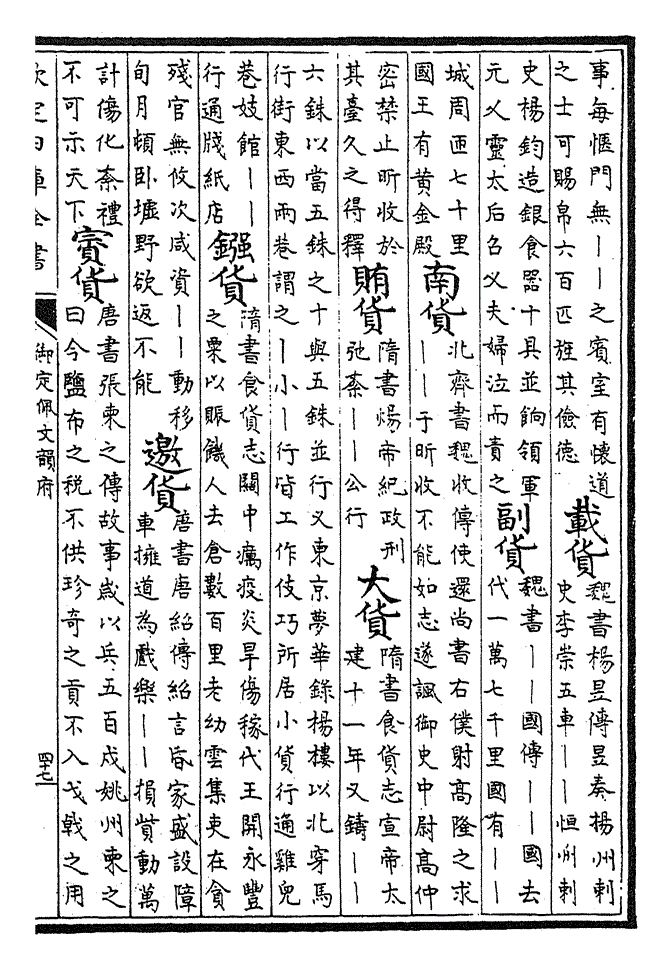 事每愜門無丨丨之賓室有懷道
之士可賜帛六百匹旌其儉德
載貨
魏書楊昱傳昱奏揚州刺
史李崇五車丨丨恒州刺
史楊鈞造銀食器十具並餉領軍
元乂靈太后召乂夫婦泣而責之
副貨
魏書丨丨國傳丨丨國去
代一萬七千里國有丨丨
城周匝七十里
國王有黄金殿
南貨
北齊書魏收傳使還尚書右僕射高隆之求
丨丨于昕收不能如志遂諷御史中尉高仲
密禁止昕收於
其臺久之得釋
賄貨
隋書煬帝紀政刑
弛紊丨丨公行
大貨
隋書食貨志宣帝大
建十一年又鑄丨丨
六銖以當五銖之十與五銖並行又東京夢華錄楊樓以北穿馬
行街東西兩巷謂之丨小丨行皆工作伎巧所居小貨行通雞兒
巷妓館丨丨
行通牋紙店
鏹貨
隋書食貨志關中癘疫炎旱傷稼代王開永豐
之粟以賑饑人去倉數百里老幼雲集吏在貪
殘官無攸次咸資丨丨動移
旬月頓卧墟野欲返不能
邀貨
唐書唐紹傳紹言昏家盛設障
車擁道為戲樂丨丨損貲動萬
計傷化紊禮
不可示天下
賨貨
唐書張柬之傳故事歲以兵五百戍姚州柬之
曰今鹽布之税不供珍奇之貢不入戈戟之用
欽定四庫全書
御定佩文韻府
四十七